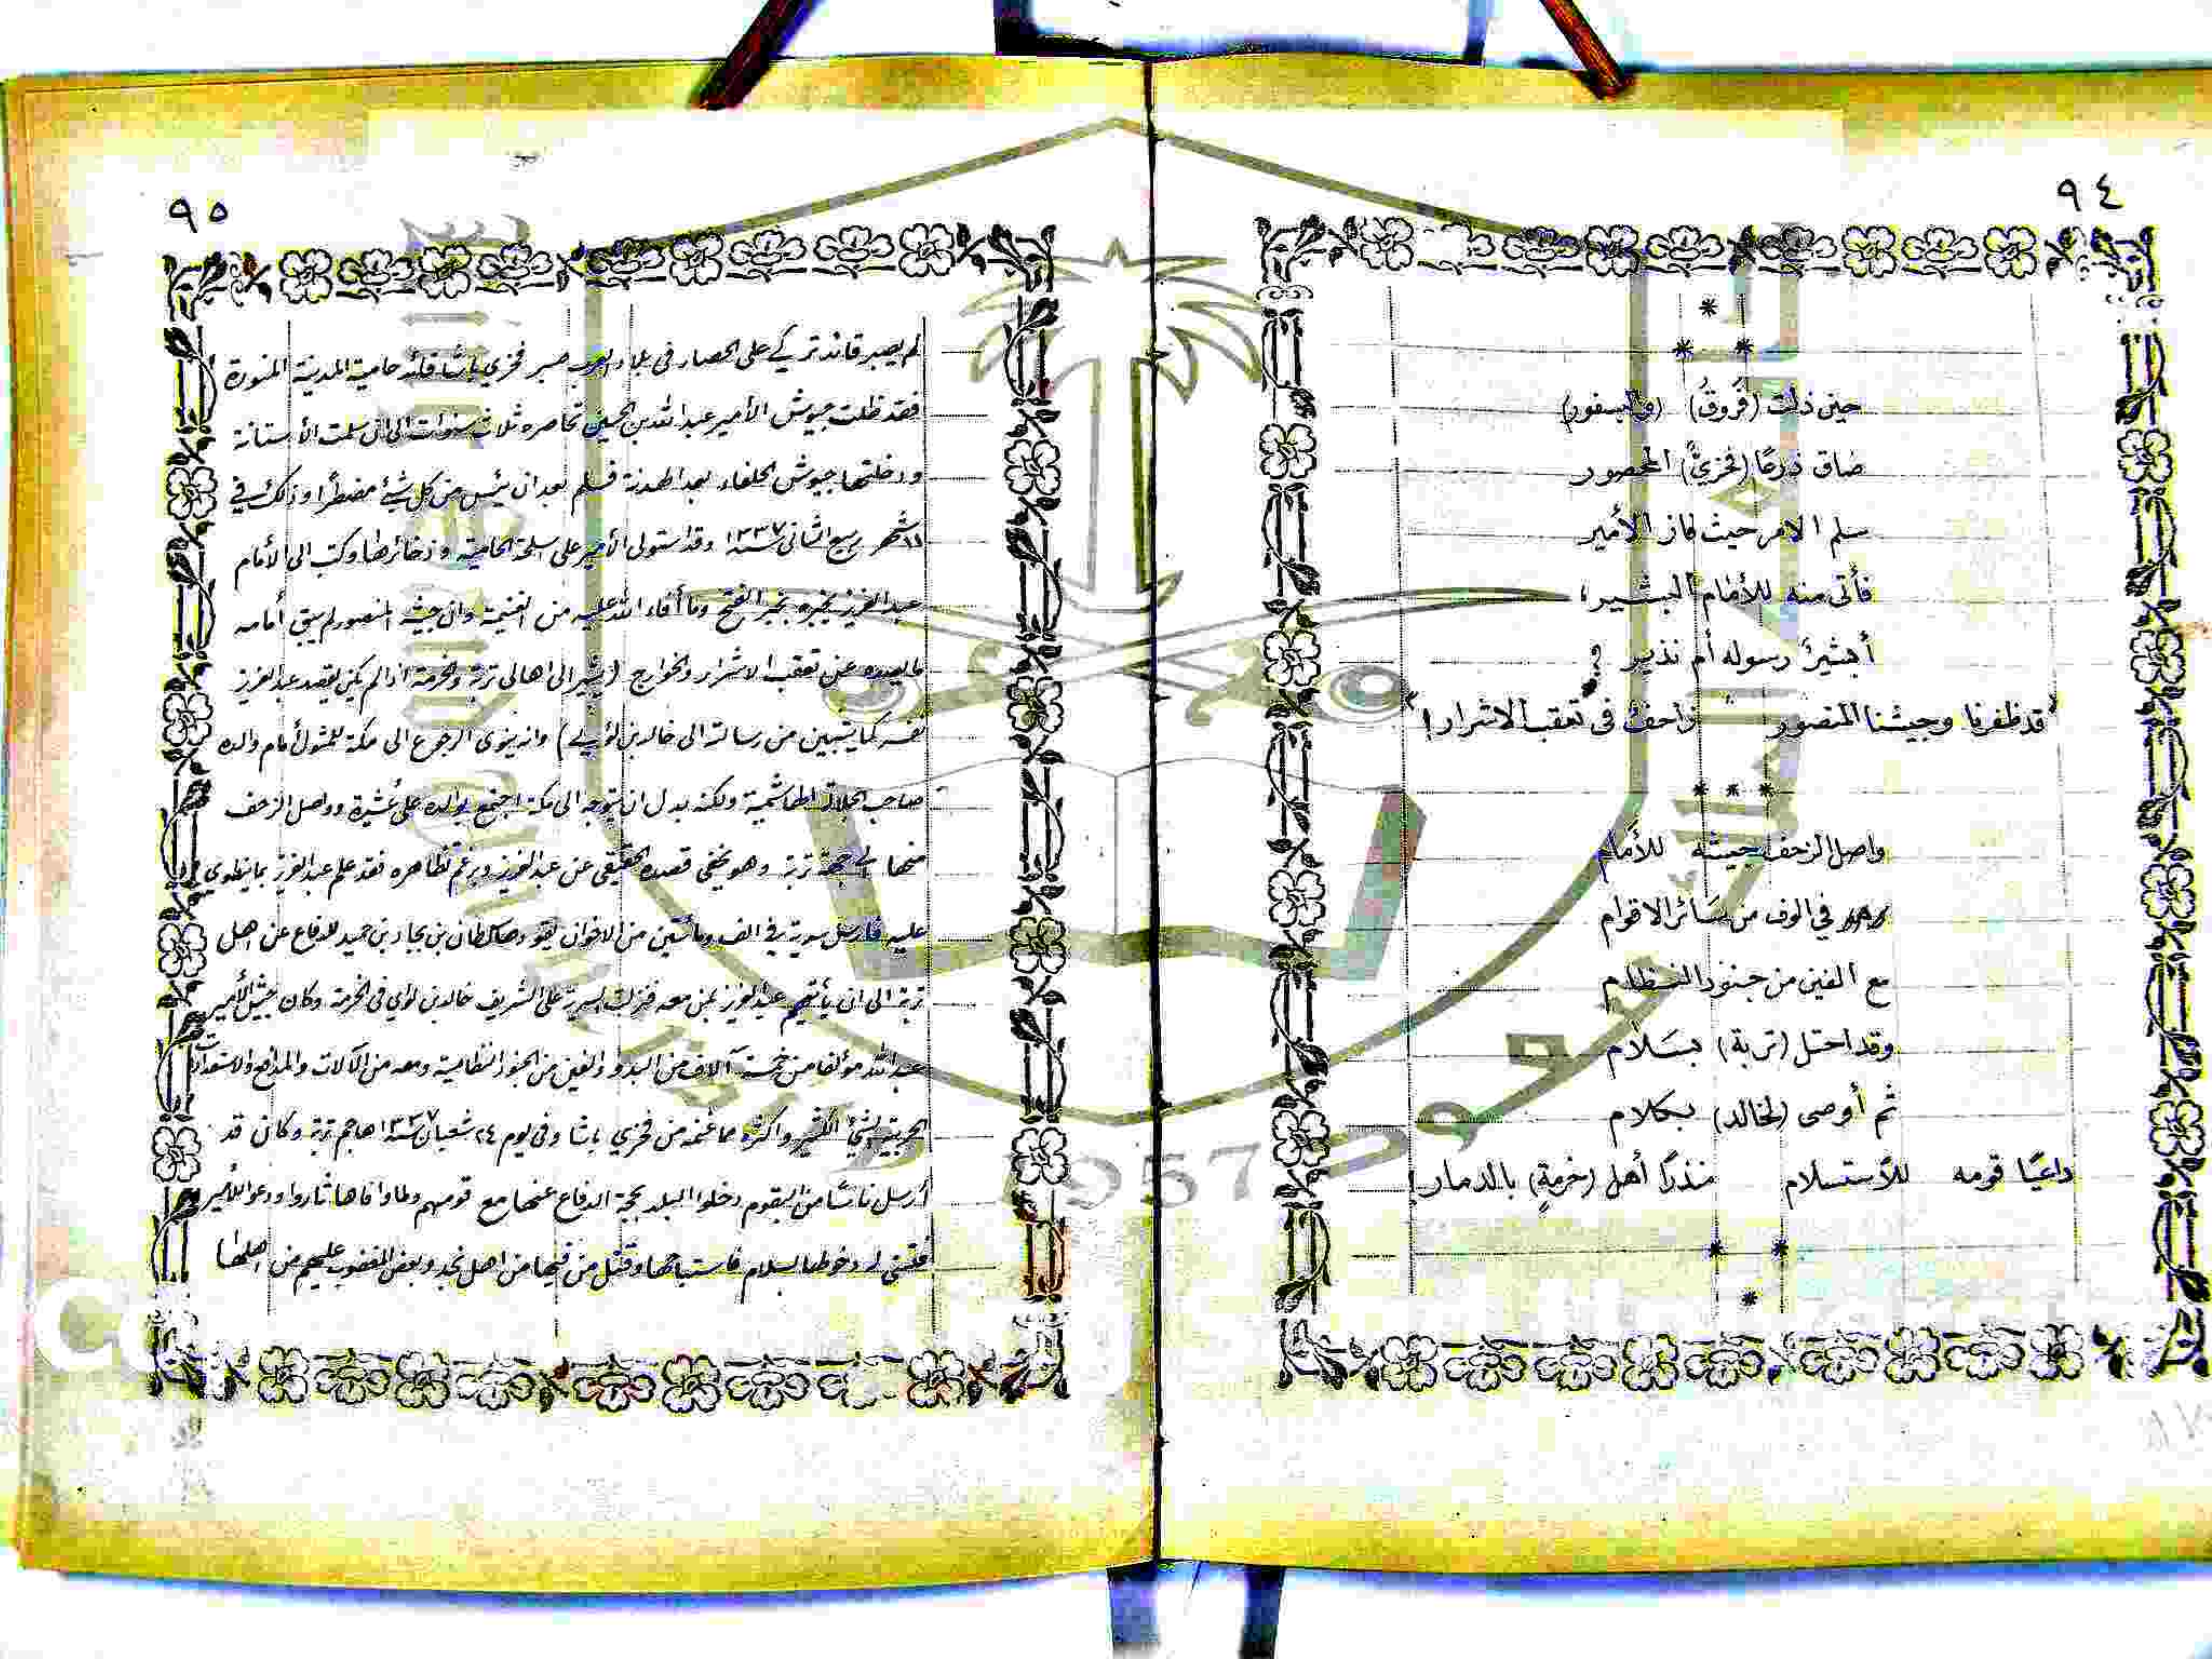 ٩٤
*
* *
حين ذلت (فُروقُ) (والبسفور)
ضاق ذرعًا (فخريُّ) المحصور
سلم الامر حيث فاز الأمير
فأتى منه للأمام البشير؛
أبشيرٌ رسوله أم نذير ؟
"قد ظفرنا وجيشنا المنصور زاحفٌ في تعقب الاشرار!"
* * *
واصل الزحف جيشه للأمام
في الوف من سَائر الاقوام
مع الفين من جنود النظام
وقد احتل (تربة) بسَلام
ثم أوصى (لخالد) بكلام
داعيًا قومه للأستسلام منذرًا أهل (خرمةٍ) بالدمار!
* *
*
٩٥
لم يصبر قائد تركي على الحصار في بلاد العرب صبر فخري باشا قائد حامية المدينة المنورة
فقد ظلت جيوش الأمير عبد الله بن الحسين تحاصره ثلاث سنوات الى ان سلمت الأستانة
ودخلتها جيوش الحلفاء بعد الهدنة فسلم بعد ان يئس من كل شئ مضطرًا وذلك في
شهر ربيع الثاني سنة ١٣٣٧ وقد استولى الأمير على اسلحة الحامية وذخائرها وكتب الى الأمام
عبد العزيز يخبره بخبر الفتح وما أفاء الله عليه من الغنيمة وان جيشه المنصور لم يبق أمامه
ما يصده عن تعقب الاشرار والخوارج (يشير الى اهالى تربة والخرمة اذا لم يكن يقصد عبد العزيز
نفسه كما يتبين من رسالته الى خالد بن لؤي) وانه ينوى الرجوع الى مكة للمثول أمام والده
صاحب الجلالة الهاشمية ولكنه بدل ان يتوجه الى مكة اجتمع بوالده على عُشيرة وواصل الزحف
منها الى جهة تربة وهو يخفي قصده الحقيقي عن عبد العزيز وبرغم تظاهره فقد علم عبد العزيز بما ينطوي
عليه فارسل سرية في الف ومائتين من الاخوان يقودها سلطان بن بجاد بن حميد للدفاع عن اهل
تربة الى ان يأتيهم عبد العزيز بمن معه فنزلت السرية على الشريف خالد بن لؤي في الخرمة وكان جيش الأمير
عبد الله مؤلفا من خمسة آلاف من البدو والفين من الجنود النظامية ومعه من الآلات والمدافع والاستعدادات
الحربية الشئ الكثير واكثره مما غنمه من فخري باشا وفي يوم ٢٤ شعبان سنة ١٣٣٧ هاجم تربة وكان قد
أرسل ناسًا من البقوم دخلوا البلد بحجة الدفاع عنها مع قومهم ولما وافاها ثاروا ودعوا للأمير
فتسنى له دخولها بسلام فاستباحها وقتل من فيها من اهل نجد وبعض المغضوب عليهم من اهلها
1957